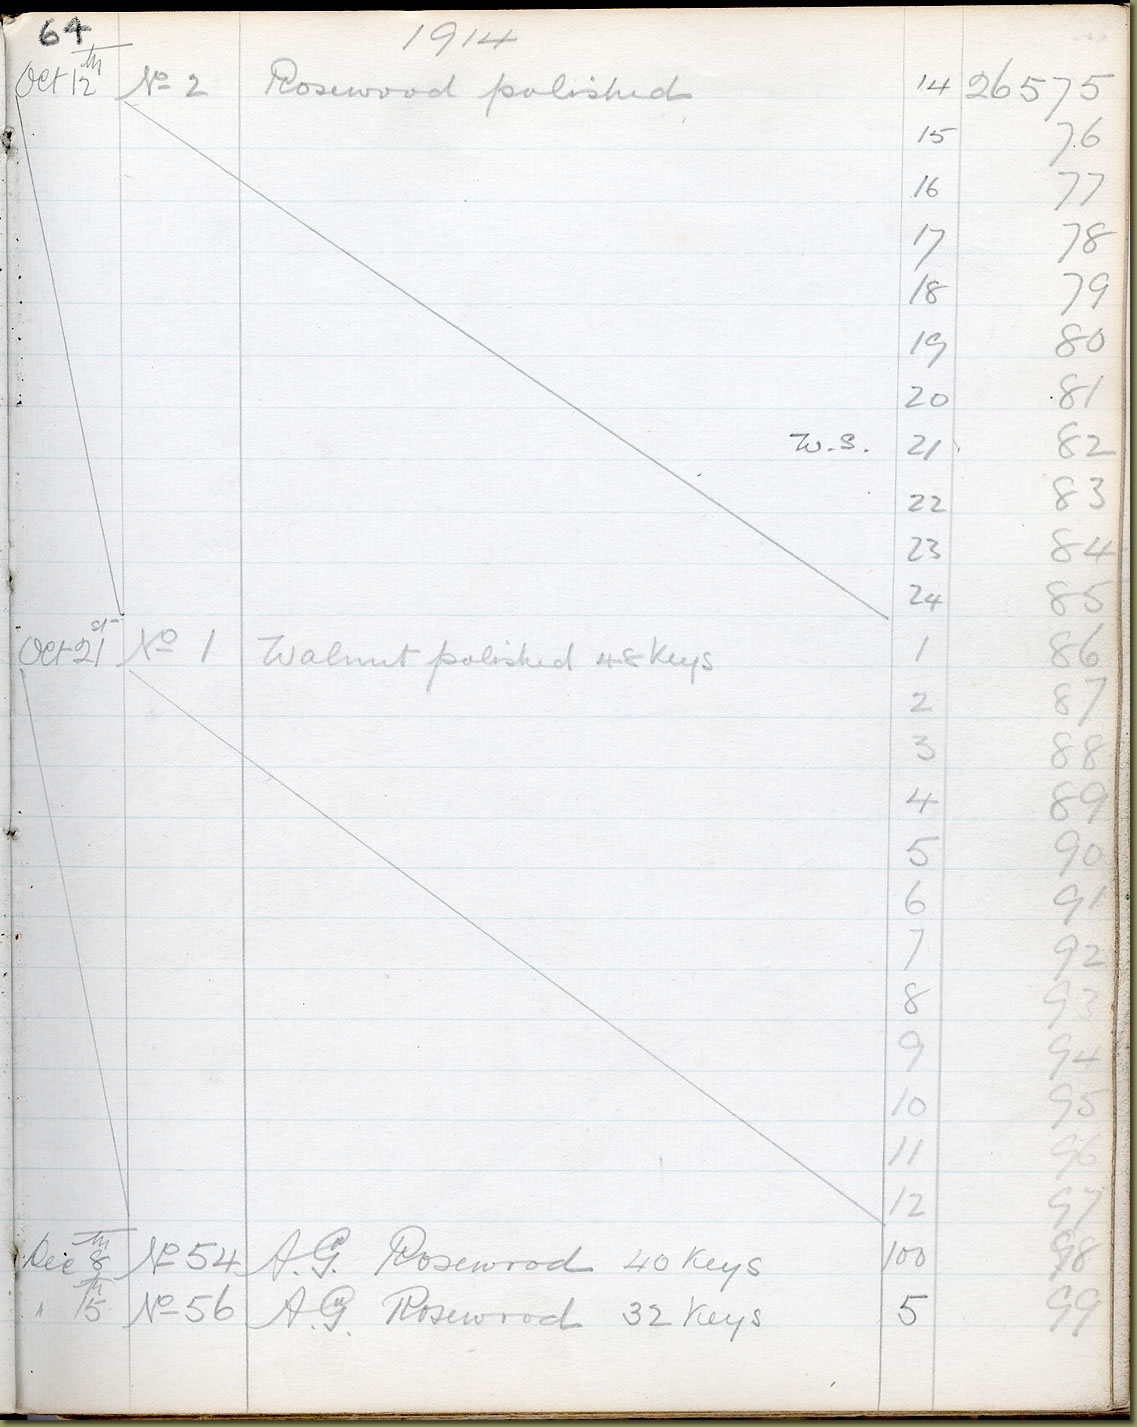 64
1914
Oct 12th No 2 Rosewood polished 14 26575
15 76
16 77
17 78
18 79
19 80
20 81
W.S. 21 82
22 83
23 84
24 85
Oct 21st No 1 Walnut polished 48 Keys 1 86
2 87
3 88
4 89
5 90
6 91
7 92
8 93
9 94
10 95
11 96
12 97
Dec 8th No 54 A.G. Rosewood 40 Keys 100 98
" 15th No 56 A.G. Rosewood 32 Keys 5 99